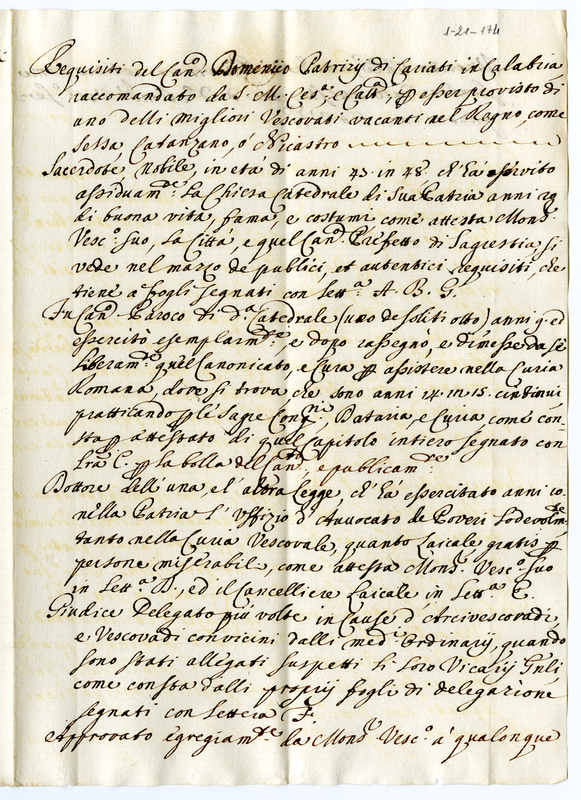 1-21-174
Requisiti del Can.º Domenico Patrizij di Cariati in Calabria
raccomandato da S. M. Ces.ª e Catt.ª, ꝑ esser provisto di
uno delli migliori Vescovati vacanti nel Regno, come
Sessa Catanzano, ó Nicastro
Sacerdote, Nobile, in etá di anni 43 in 48. ch'há servito
assiduam.te la Chiesa Catedrale di Sua Patria anni 29
di buona vita, fama, e costumi come attesta Mons.r
Vesc.º suo, la Cittá, e quel Can.º Prefetto di Sagrestia si
vede nel mazzo de publici, et autentici requisiti, che
tiene a fogli segnati con Lett.ª A. B. G.
Fu Can.º Paroco di d.ª Catedrale (uno de soliti otto) anni 9. ed
essercitò esemplarm.te, e dopo rassegnò, e dimesse da sé
liberam.te quel Canonicato, e Cura ꝑ assistere nella Curia
Romana, dove si trova che sono anni 14. in 15. continui
pratticando ꝑ le Sagre Cong.ni, Dataria, e Curia come con-
sta ꝑ attestato di quel Capitolo intiero segnato con
Lrã C. ꝑ la bolla del Can.to e publicam.te
Dottore dell'una, e l'altra Legge, ch'há essercitato anni 10.
nella Patria l'Uffizio d'Avvocato de Poveri lodevolm.te
tanto nella Curia Vescovale, quanto Laicale gratis ꝑ
persone miserabile, come attesta Mons.r Vesc.º suo
in Lett.ª D., ed il Cancelliere Laicale in Lett.ª E.
Giudice Delegato piú volte in Cause d'Arcivescovadi,
e Vescovadi convicini dalli med.i Ordinarij, quando
sono stati allegati suspetti li loro Vicarij Gñli
come consta dalli proprij fogli di delegazione
segnati con Lettera F.
Approvato egregiam.te da Mons.r Vesc.º a qualonque